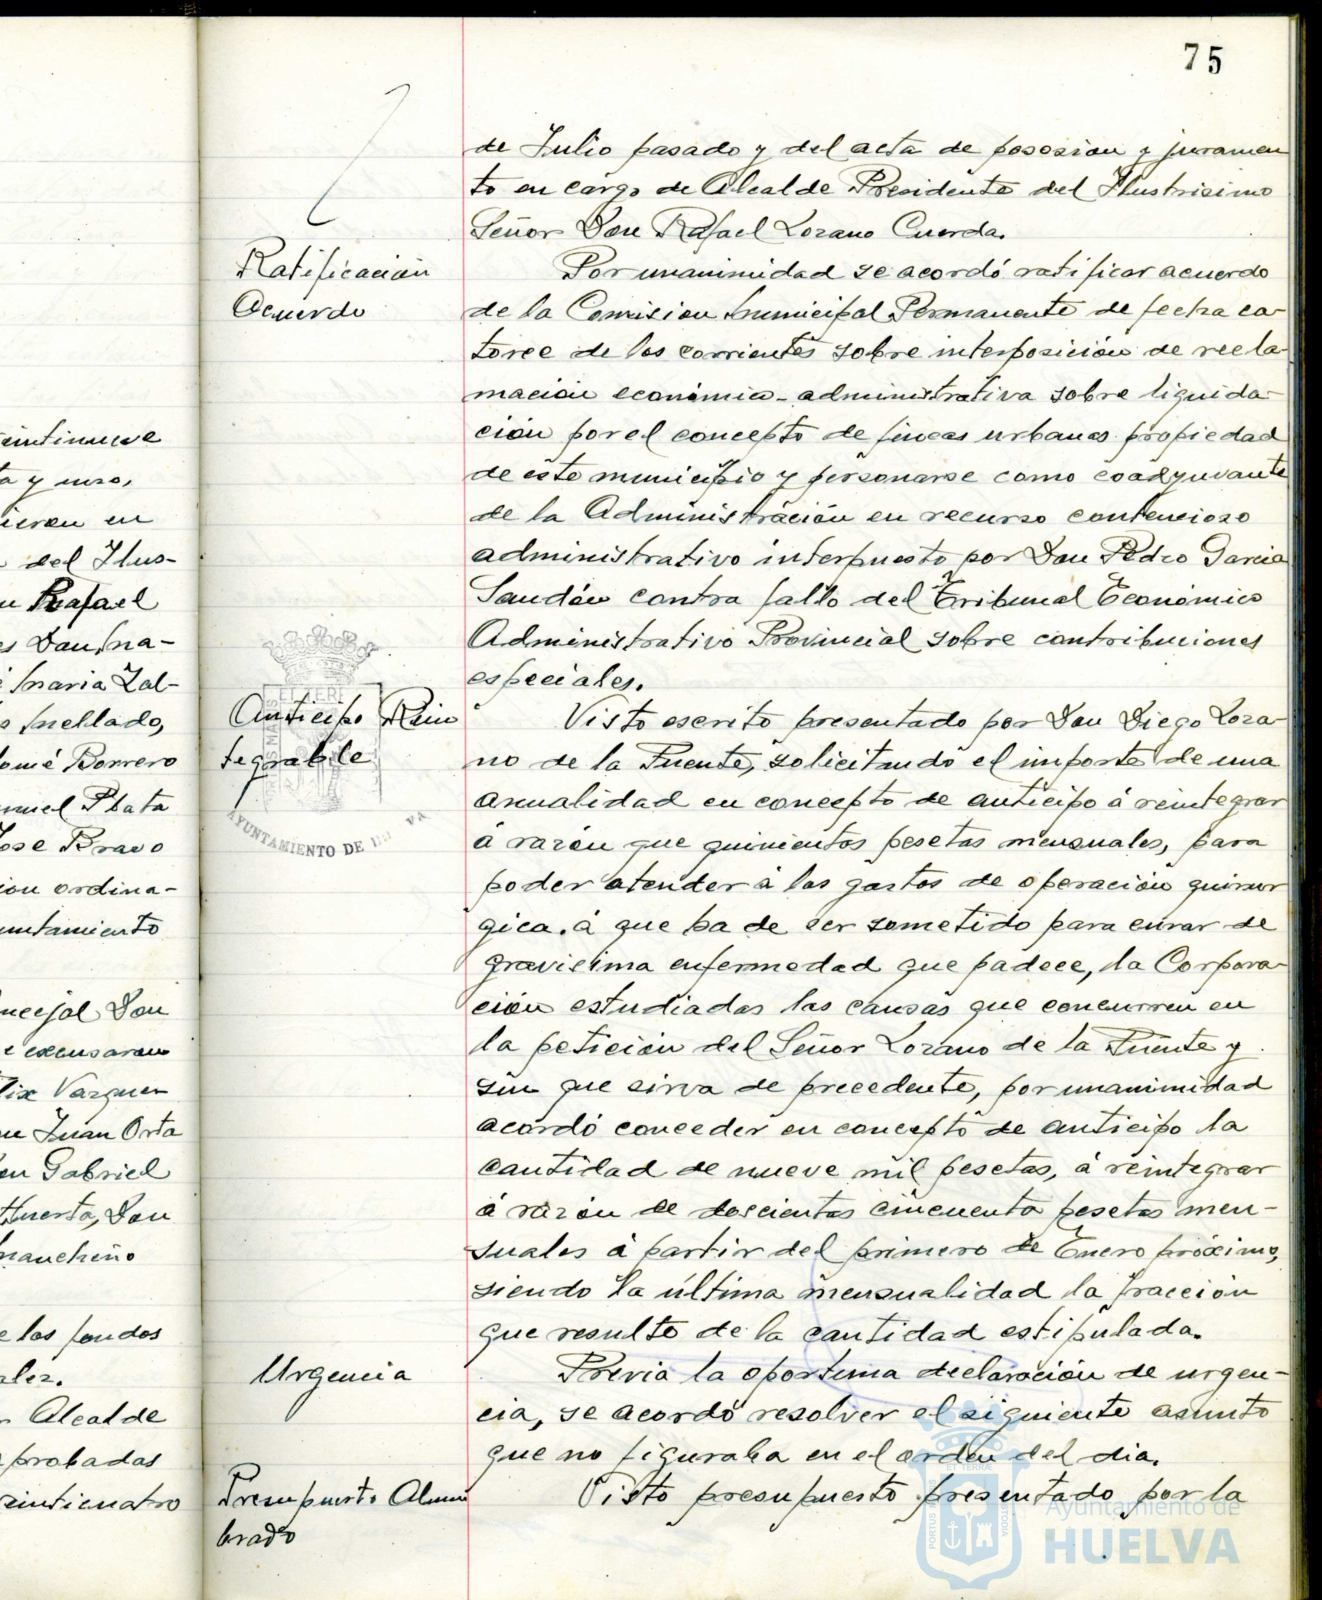 75
de Julio pasado y del acta de posesion y juramen
to en cargo de Alcalde Presidente del Ilustrisimo
Señor Don Rafael Lozano Cuerda.
Ratificación
Acuerdo
Por unanimidad se acordó ratificar acuerdo
de la Comision Municipal Permanente de fecha ca-
torce de los corrientes sobre interposición de recla-
mación económico-administrativa sobre liquida-
ción por el concepto de fincas urbanas propiedad
de este municipio y personarse como coadyuvante
de la Administración en recurso contencioso
administrativo interpuesto por Don Pedro Garcia
Sandón contra fallo del Tribunal Económico
Administrativo Provincial sobre contribuciones
especiales.
Anticipo Rein
tegrable
Visto escrito presentado por Don Diego Loza-
no de la Fuente, solicitando el importe de una
anualidad en concepto de anticipo á reintegrar
á razón que quinientas pesetas mensuales, para
poder atender á los gastos de operación quirur
gica. á que ha de ser sometido para curar de
gravisima enfermedad que padece, la Corpora-
ción estudiadas las causas que concurren en
la petición del Señor Lozano de la Fuente y
sin que sirva de precedente, por unanimidad
acordó conceder en concepto de anticipo la
cantidad de nueve mil pesetas, á reintegrar
á razón de doscientas cincuenta pesetas men-
suales á partir del primero de Enero próximo,
siendo la última mensualidad la fracción
que resulte de la cantidad estipulada.
Urgencia
Previa la oportuna declaración de urgen-
cia, se acordó resolver el siguiente asunto
que no figuraba en el orden del dia.
Presupuesto Alum
brado
Visto presupuesto presentado por la
AYUNTAMIENTO DE
Ayuntamiento de
HUELVA
eintinueve
a y uno,
ieron en
del Ilus-
Rafael
es Don Ma-
é Maria Zal-
Mellado,
lomé Borrero
anuel Plata
José Bravo
ion ordina-
untamiento
ncejal Don
e excusaron
lix Vazquez
Juan Orta
on Gabriel
Huerta, Don
Mancheño
e los fondos
ales.
r Alcalde
aprobadas
veinticuatro